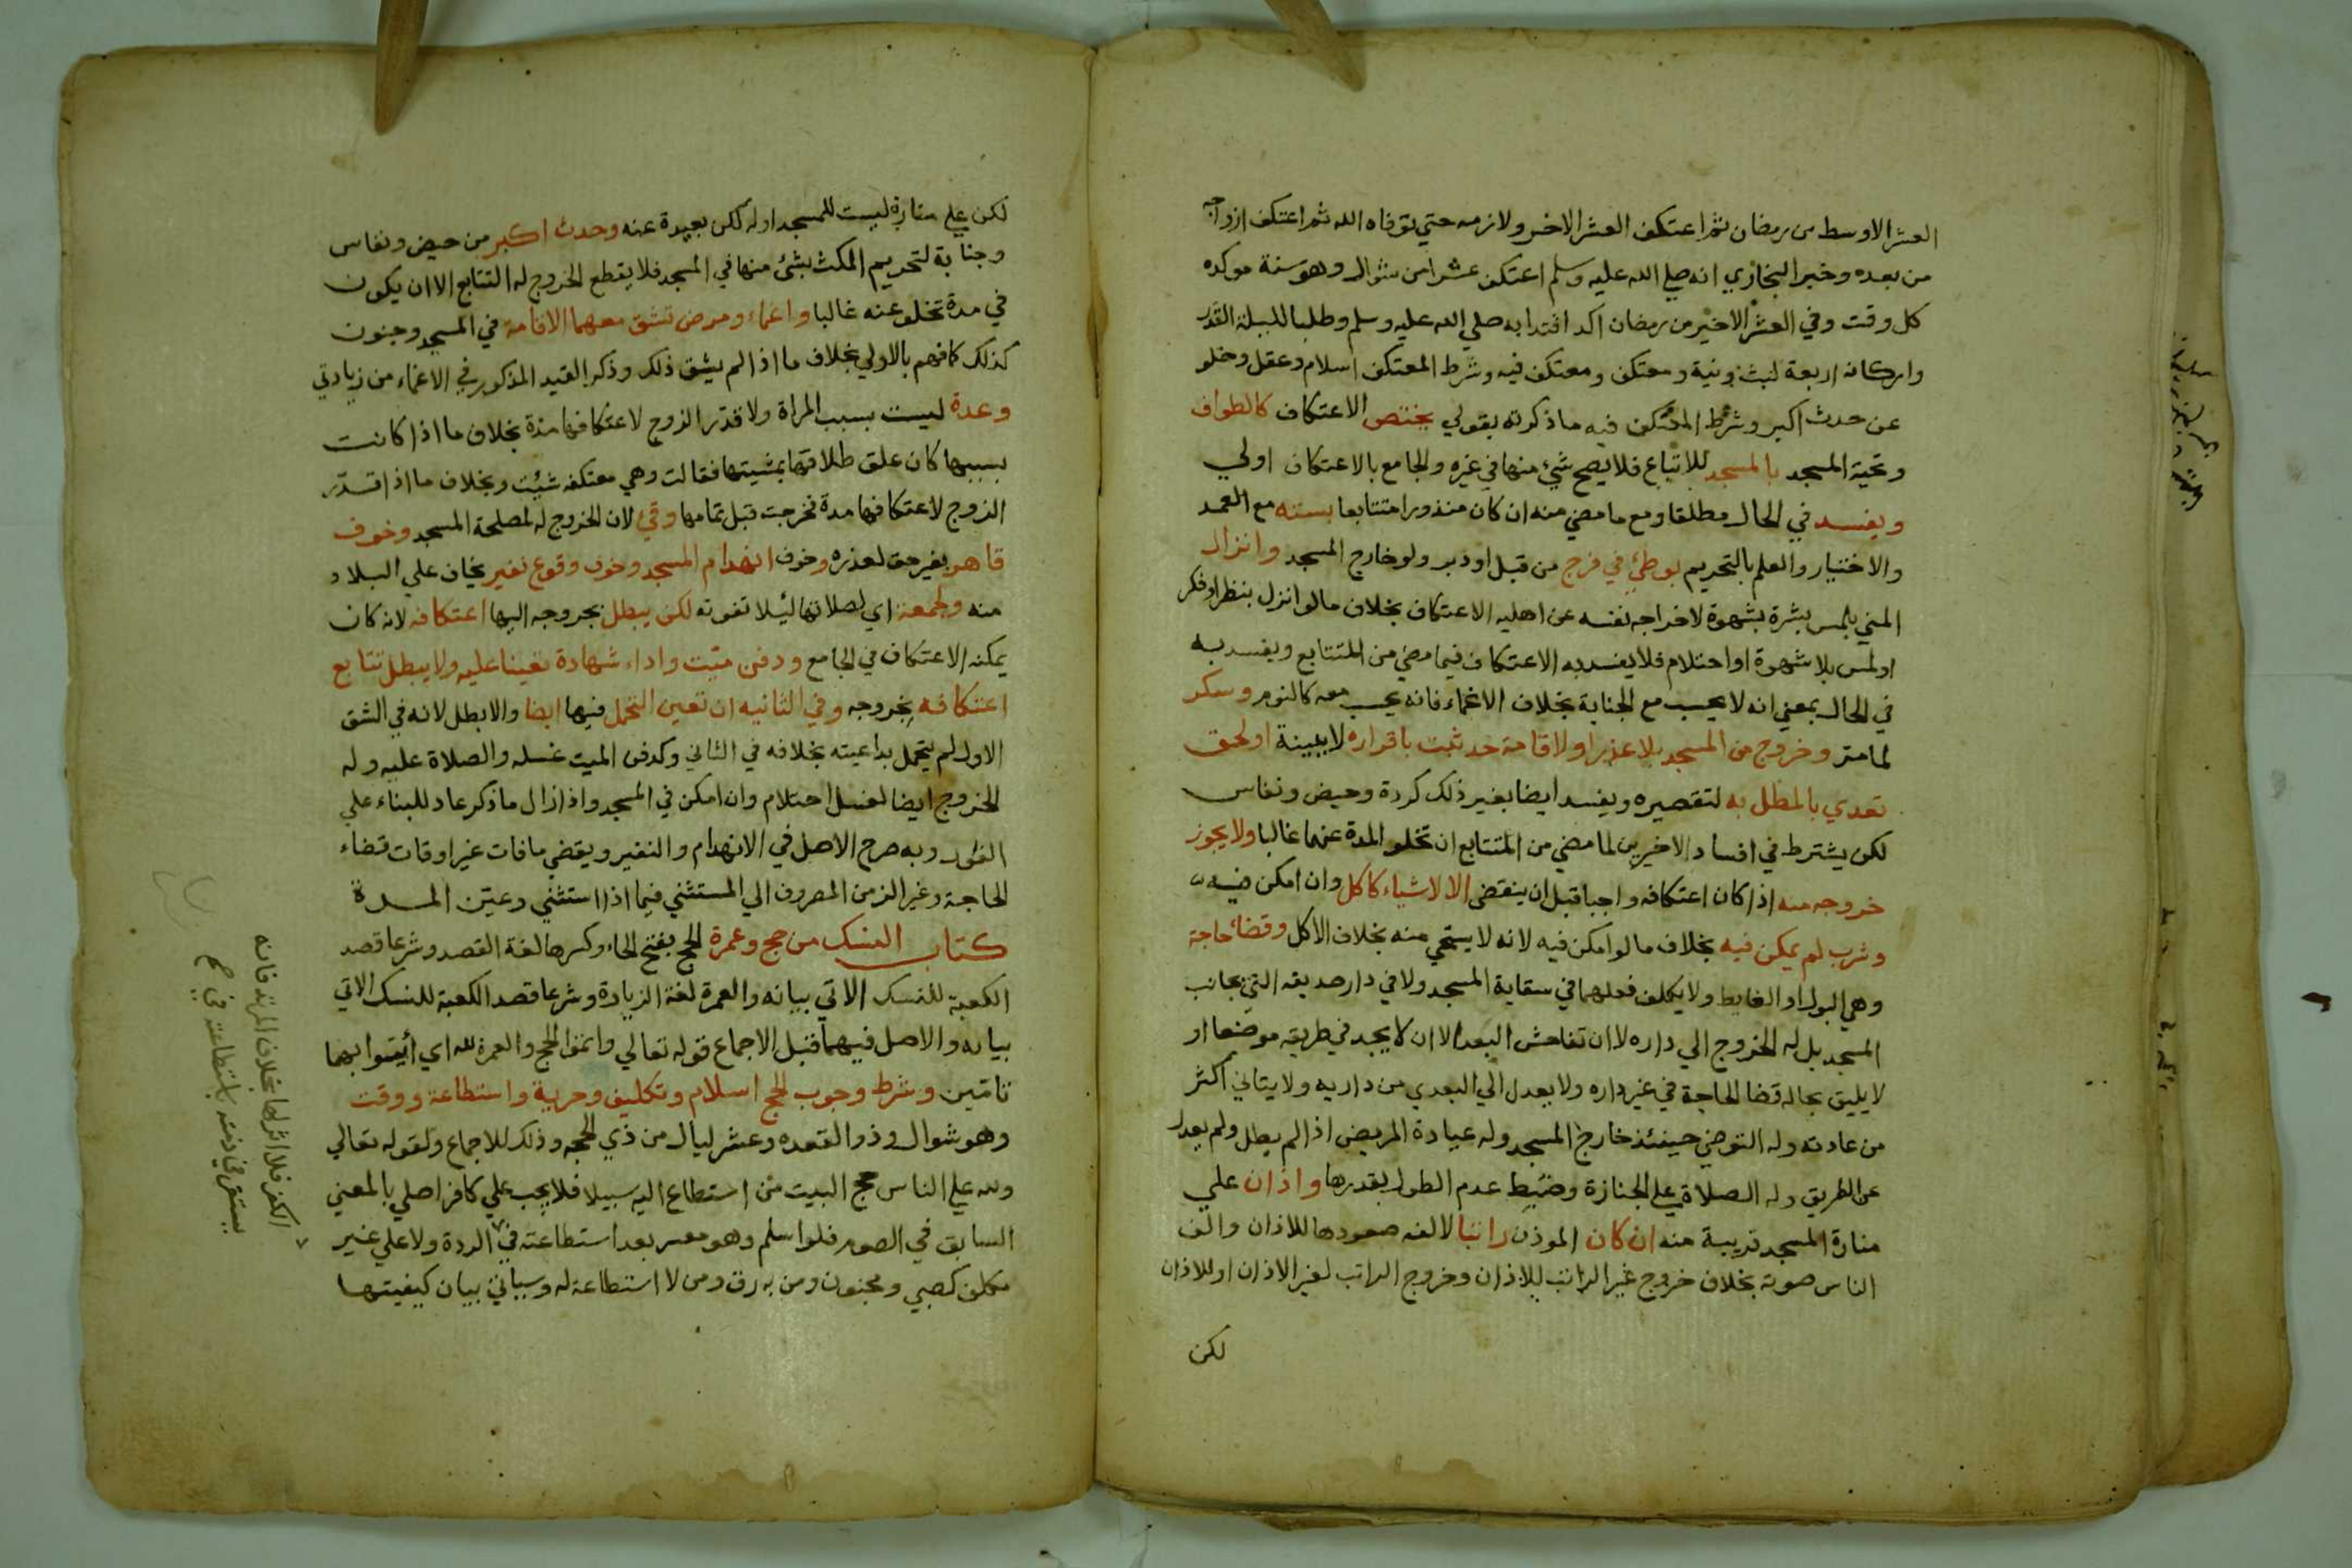 العشر الاوسط من رمضان ثم اعتكف العشر الاخر ولازمه حتي توفاه الله ثم اعتكف ازواجه
من بعده وخبر البخاري انه صلي الله عليه وسلم اعتكف عشرا من شوال وهو سنة موكده
كل وقت وفي العشر الاخير من رمضان اكد اقتدا به صلي الله عليه وسلم وطلبا لليلة القدر
واركانه اربعة لبث ونية ومعتكف ومعتكف فيه وشرط المعتكف اسلام وعقل وخلو
عن حدث اكبر وشرط المعتكف فيه ما ذكرته بقولي يختص الاعتكاف كالطواف
وتحية المسجد بالمسجد للاتباع فلا يصح شيء منها في غيره والجامع بالاعتكاف اولي
ويفسد في الحال مطلقا ومع ما مضي منه ان كان منذورا متتابعا بسته مع العمد
والاختيار والعلم بالتحريم بوطئ في فرج من قبل او دبر ولو خارج المسجد وانزال
المني بلمس بشرة بشهوة لاخراجه نفسه عن اهليه الاعتكاف بخلاف ما لو انزل بنظر او فكر
او لمس بلا شهوة او احتلام فلا يفسد به الاعتكاف فيما مضي من المتتابع ويفسد به
في الحال بمعني انه لا يحسب مع الجنابة بخلاف الاغماء فانه يحسب معه كالنوم وسكر
لما مر وخروج من المسجد بلا عذر او لاقامة حد ثبت باقراره لا ببينة او لحق
تعدي بالمطل به لتقصيره ويفسد ايضا بغير ذلك كردة وحيض ونفاس
لكن يشترط في افساد الاخيرين لما مضي من المتتابع ان تخلو المدة عنهما غالبا ولا يجوز
خروجه منه اذا كان اعتكافه واجبا قبل ان ينقضي الا لاشياء كاكل وان امكن فيه
وشرب لم يمكن فيه بخلاف ما لو امكن فيه لانه لا يستحي منه بخلاف الاكل وقضاء حاجة
وهي البول او الغايط ولا يكلف فعلهما في سقاية المسجد ولا في دار صديقه التي بجانب
المسجد بل له الخروج الي داره لا ان تفاحش البعد الا ان لا يجد في طريقه موضعا او
لا يليق بحاله قضا الحاجة في غير داره ولا يعدل الي البعدي من داريه ولا يتاني اكثر
من عادته وله التوضي حينئذ خارج المسجد وله عيادة المريض اذا لم يطل ولم يعدل
عن الطريق وله الصلاة علي الجنازة وضبط عدم الطول بقدرها واذان علي
منارة المسجد قريبة منه ان كان الموذن راتبا لالفه صعودها للاذان والف
الناس صوته بخلاف خروج غير الراتب للاذان وخروج الراتب لغير الاذان او للاذان
لكن
لكن علي منارة ليست للمسجد اوله لكن بعيدة عنه وحدث اكبر من حيض ونفاس
وجنابة لتحريم المكث بشئ منها في المسجد فلا يقطع الخروج له التتابع الا ان يكون
في مدة تخلو عنه غالبا واغماء ومرض تشق معهما الاقامة في المسجد وجنون
كذلك كما فهم بالاولي بخلاف ما اذا لم يشق ذلك وذكر القيد المذكور في الاغماء من زيادتي
وعدة ليست بسبب المراة ولا قدر الزوج لاعتكافها مدة بخلاف ما اذا كانت
بسببها كان علق طلاقها بمشيتها فقالت وهي معتكفه شئت وبخلاف ما اذا قدر
الزوج لاعتكافها مدة فخرجت قبل تمامها وقئ لان الخروج له لمصلحة المسجد وخوف
قاهر بغير حق لعذره وخوف انهدام المسجد وخوف وقوع نفير يخاف علي البلاد
منه ولجمعة اي لصلاتها ليلا تفوته لكن يبطل بخروجه اليها اعتكافه لانه كان
يمكنه الاعتكاف في الجامع ودفن ميت واداء شهادة تعينا عليه ولا يبطل تتابع
اعتكافه بخروجه وفي الثانيه ان تعين التحمل فيها ايضا والا بطل لانه في الشق
الاول لم يتحمل بداعيته بخلافه في الثاني وكدفن الميت غسله والصلاة عليه وله
الخروج ايضا لغسل احتلام وان امكن في المسجد واذا زال ما ذكر عاد للبناء علي
الفور وبه صرح الاصل في الانهدام والنفير ويقضي ما فات غير اوقات قضاء
الحاجة وغير الزمن المصروف الي المستثني فيما اذا استثني وعين المدة
كتاب النسك من حج وعمرة الحج بفتح الحاء وكسرها لغة القصد وشرعا قصد
الكعبة للنسك الاتي بيانه والعمرة لغة الزيارة وشرعا قصد الكعبة للنسك الاتي
بيانه والاصل فيهما قبل الاجماع قوله تعالي واتموا الحج والعمرة لله اي أئتوا بهما
تامتين وشرط وجوب الحج اسلام وتكليف وحرية واستطاعة ووقت
وهو شوال وذو القعده وعشر ليال من ذي الحجه وذلك للاجماع ولقوله تعالي
ولله علي الناس حج البيت من استطاع اليه سبيلا فلا يجب علي كافر اصلي بالمعني
السابق في الصوم فلو اسلم وهو معسر بعد استطاعته في الردة ولا علي غير
مكلف كصبي ومجنون ومن به رق ومن لا استطاعة له وسياتي بيان كيفيتها
الكفر فلا اثر لها بخلاف المرتد فانه
يستقر في ذمته باستطاعته في صح